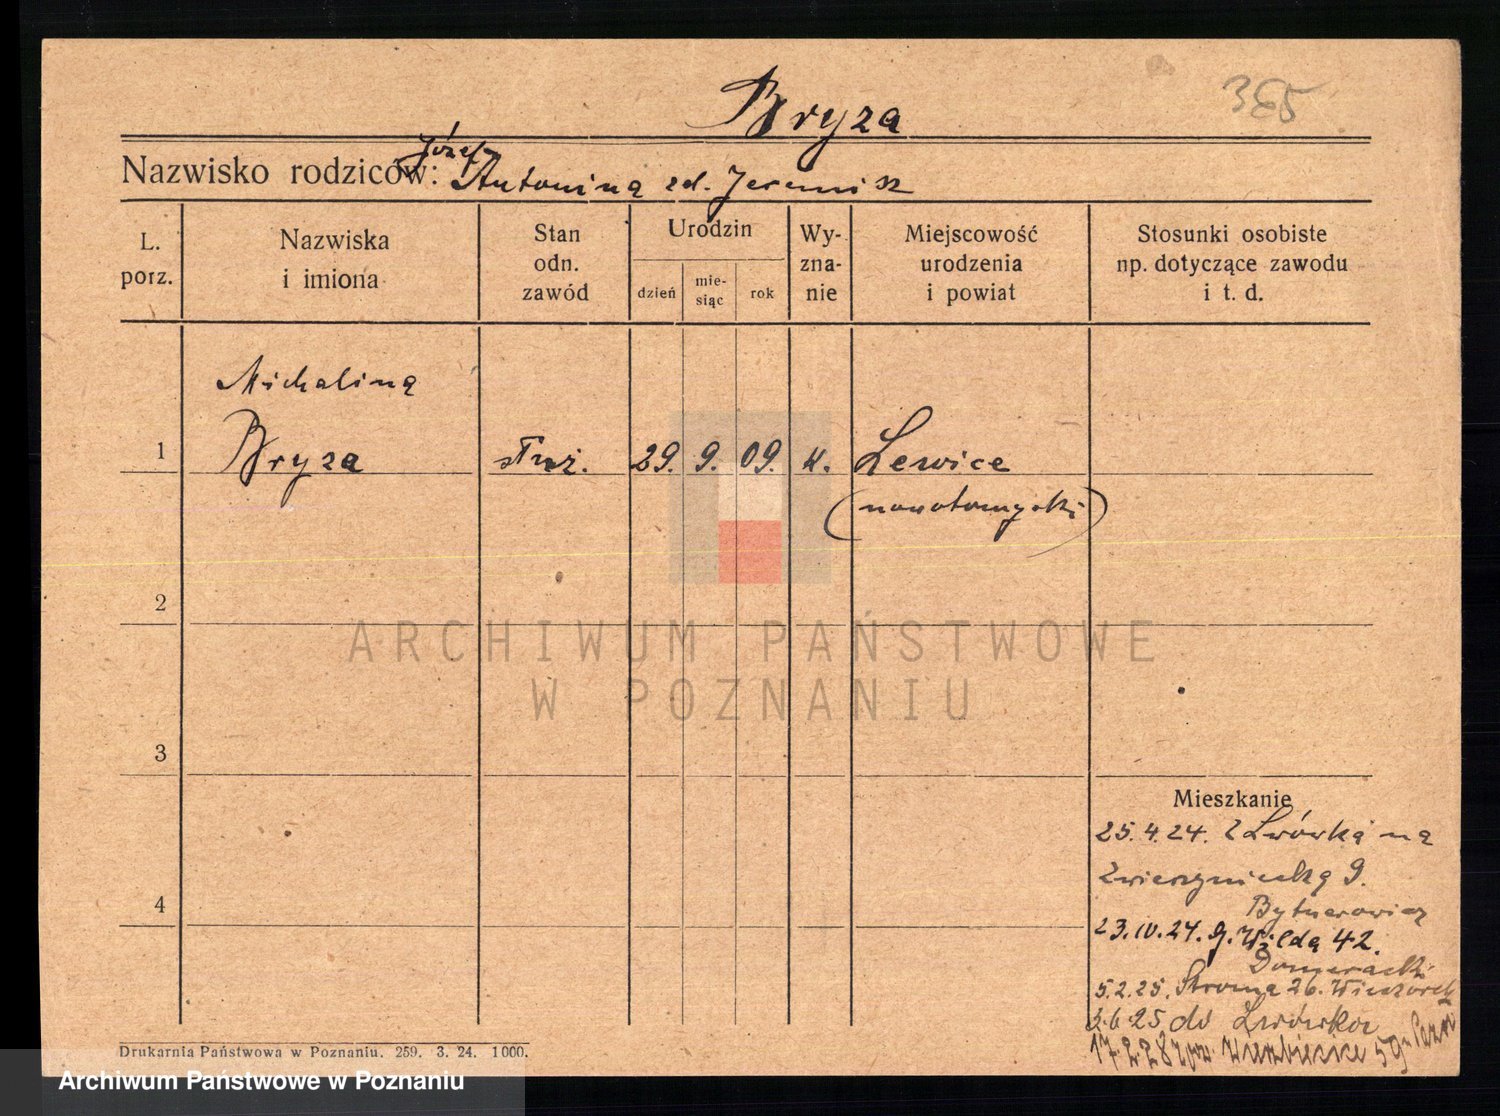 Bryza
365
Józef
Nazwisko rodziców: Antonina zd. Jeremisz
L. porz.
Nazwiska i imiona
Stan odn. zawód
Urodzin
dzień
mie-siąc
rok
Wy-zna-nie
Miejscowość urodzenia i powiat
Stosunki osobiste np. dotyczące zawodu i t. d.
Michalina
1 Bryza służ. 29. 9. 09. k. Lewice
(nowotomyski)
2
ARCHIWUM PAŃSTWOWE
W POZNANIU
3
Mieszkanie
25.4.24. z Lwówka na
Zwierzyniecką 9.
4
Bytnerowicz
23.IV.24. G. Wilda 42.
5.2.25. Stroma 26. Wieczorek
3.6.25 do Lwówka
17.2.28
Drukarnia Państwowa w Poznaniu. 259. 3. 24. 1000.
Archiwum Państwowe w Poznaniu